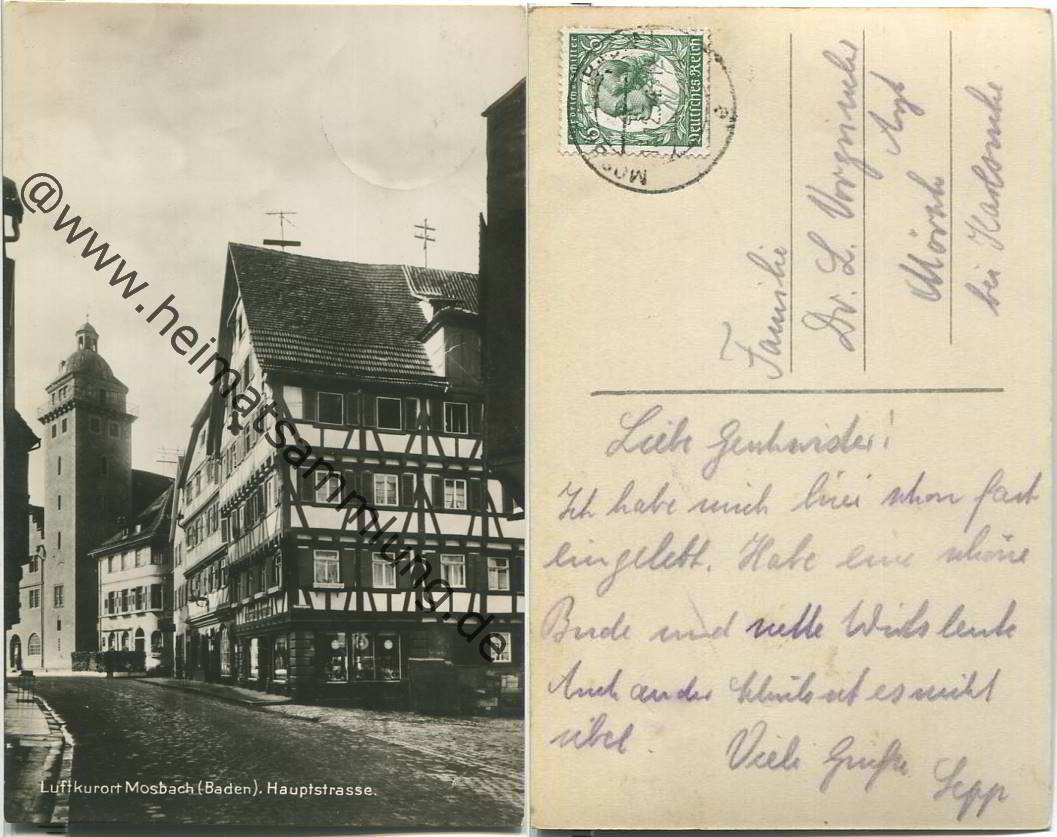 @www.heimatsammlung.de
Luftkurort Mosbach (Baden). Hauptstrasse.
Friedrich v. Schiller
6 6
Deutsches Reich
Mos
Familie
Dr. L.
Arzt
Mörsch
bei Karlsruhe
Liebe Geschwister!
Ich habe mich hier schon fast
eingelebt. Habe eine schöne
Bude und nette Wirtsleute
Auch an der Schule ist es nicht
übel.
Viele Grüße
Sepp